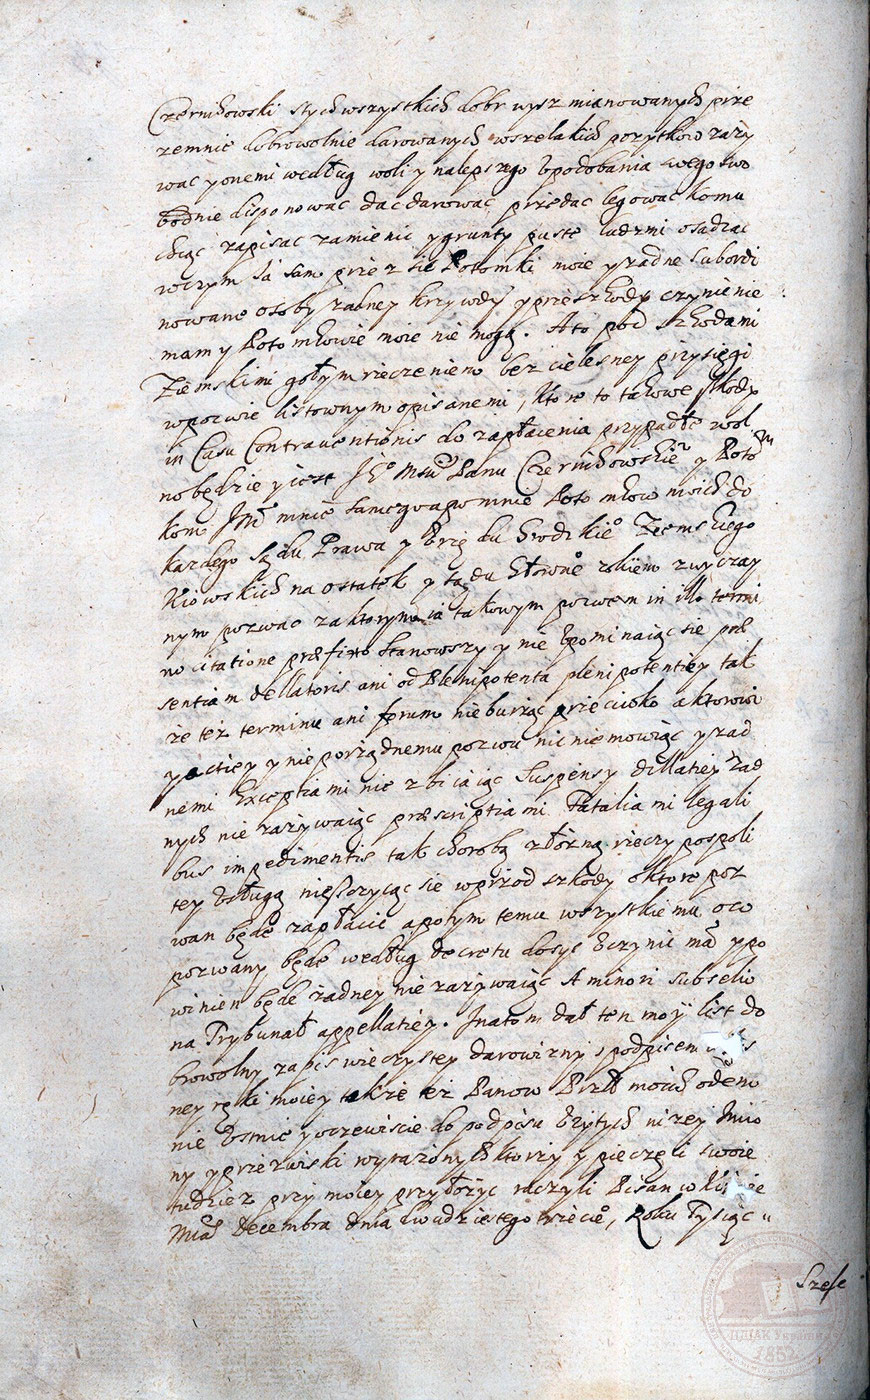 Czernihowski stych wszystkich dobr wysz mianowanych prze
zemnie dobrowolnie darowanych wszelakich pozytkow zazy
wac y onemi według woli y nalepszego upodobania swego swo
bodnie disponowac dac darowac przedac legowac komu
chcąc zapisac zamienic y grunty puste ludzmi osadzac
wczym Ja sam przez się Potomki moie y zadne subordi
nowane osoby zadney krzywdy y przeszkody czynic nie
mamy y Potomkowie moie nie mogą. A to pod szkodami
Ziemskimi gołym rzeczeniem bez cielesney przysięgi
w pozwie listownym opisanemi, ktore to takowe szkody
in Casu Contraventionis do zapłacenia przypadłe wol
no będzie y iest Je° Msci Panu Czernihowskie° y Poto
kom Jm mnie samego a po mnie Potomkow moich do
kazdego Sądu Prawa y Urzędu Grodzkie° Ziemskiego
Kiowskich na ostatek y sądu Głowne° rokiem zwyczay
nym pozwac za ktorym ia takowym pozwem in illo termi
no citatione præfixo stanowszy y nie upominaiąc się præ
sentiam dellatoris ani od Plenipotenta plenipotentiey tak
ze tez terminu ani forum nie burząc przeciwko aktorowi
y actiey y nieporządnemu pozwu nic nie mowiąc y zad
nemi Exceptiami nie zbiiaiąc Suspensy dillatiey zad
nych nie zazywaiąc præscriptiami Fatalia mi legali
bus impedimentis tak chorobą złozną rzeczy pospoli
tey usługą nieszczycąc się wprzod szkody o ktore poz
wan będę zapłacic a potym temu wszystkiemu oco
pozwany będę według decretu dosyc uczynic mam y po
winien będę żadney nie zazywaiąc A minori subselio
na Trybunał appellatiey. Inatom dał ten moÿ list do
browolny zapis wieczystey darowizny s podpisem
ney ręki moiey takze tez Panow Przł moich odemo
nie ustnie y oczewiscie do podpisu uzytych nizey Imio
ny y przezwiski wyrazonych ktorzy y pieczęci swoie
tudziez przy moiey przyłozyc raczyli Pisan w Kiiowie
Mca Decembra dnia dwudziestego trzecie°, Roku Tysiąc
Szesc